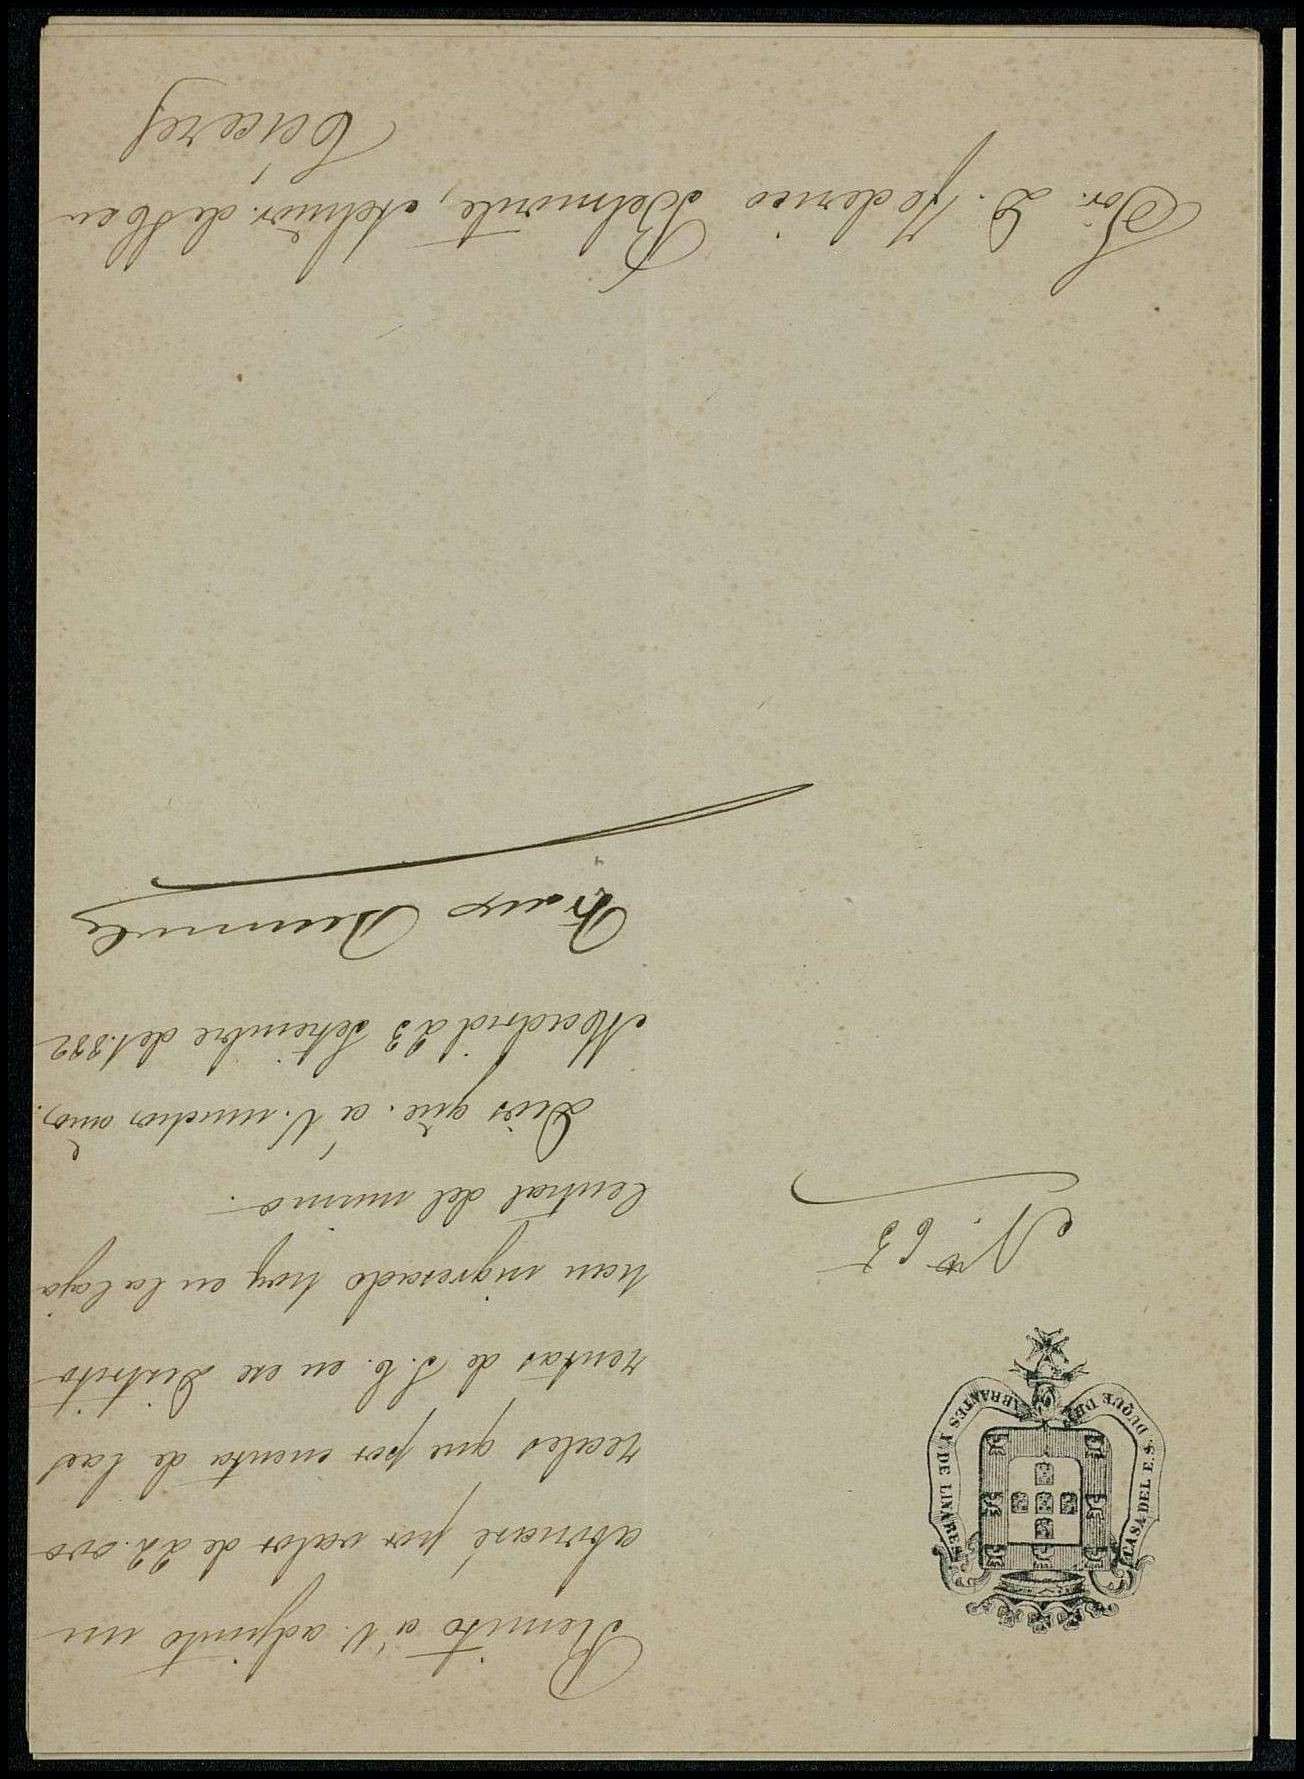 CASA DEL E.S. DUQUE DE ABRANTES Y DE LINARES
N.º 63
Remito á V. adjunto un
abonaré por valor de 22.000
reales que por cuenta de las
rentas de S.E. en ese distrito
han ingresado hoy en la Caja
Central del mismo.
Dios gůe. á V. muchos años.
Madrid 23 Setiembre de 1.882
Sor. D. Federico Belmonte, Admōr. de
Cáceres